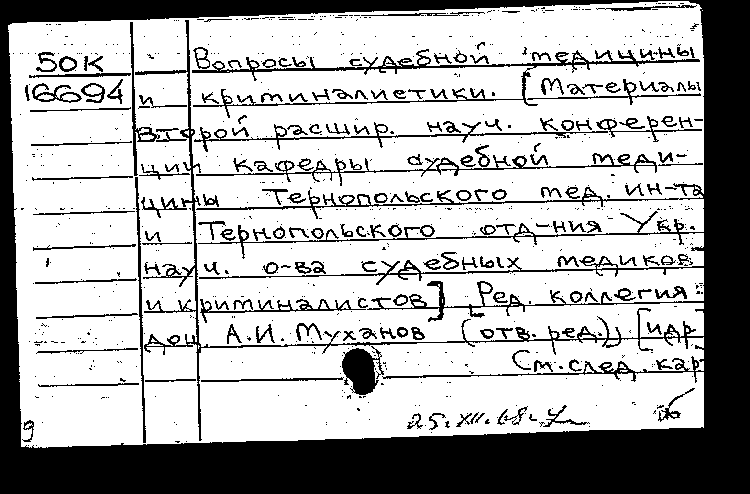 50К Вопросы судебной медицины
16694 и криминалистики. [Материалы
второй расшир. науч. конферен-
ции кафедры судебной меди-
цины Тернопольского мед. ин-та
и Тернопольского отд-ния Укр.
науч. о-ва судебных медиков
и криминалистов] [Ред. коллегия:
доц. А.И. Муханов (отв. ред.), [и др
См. след. кар
25.XII.68.
9